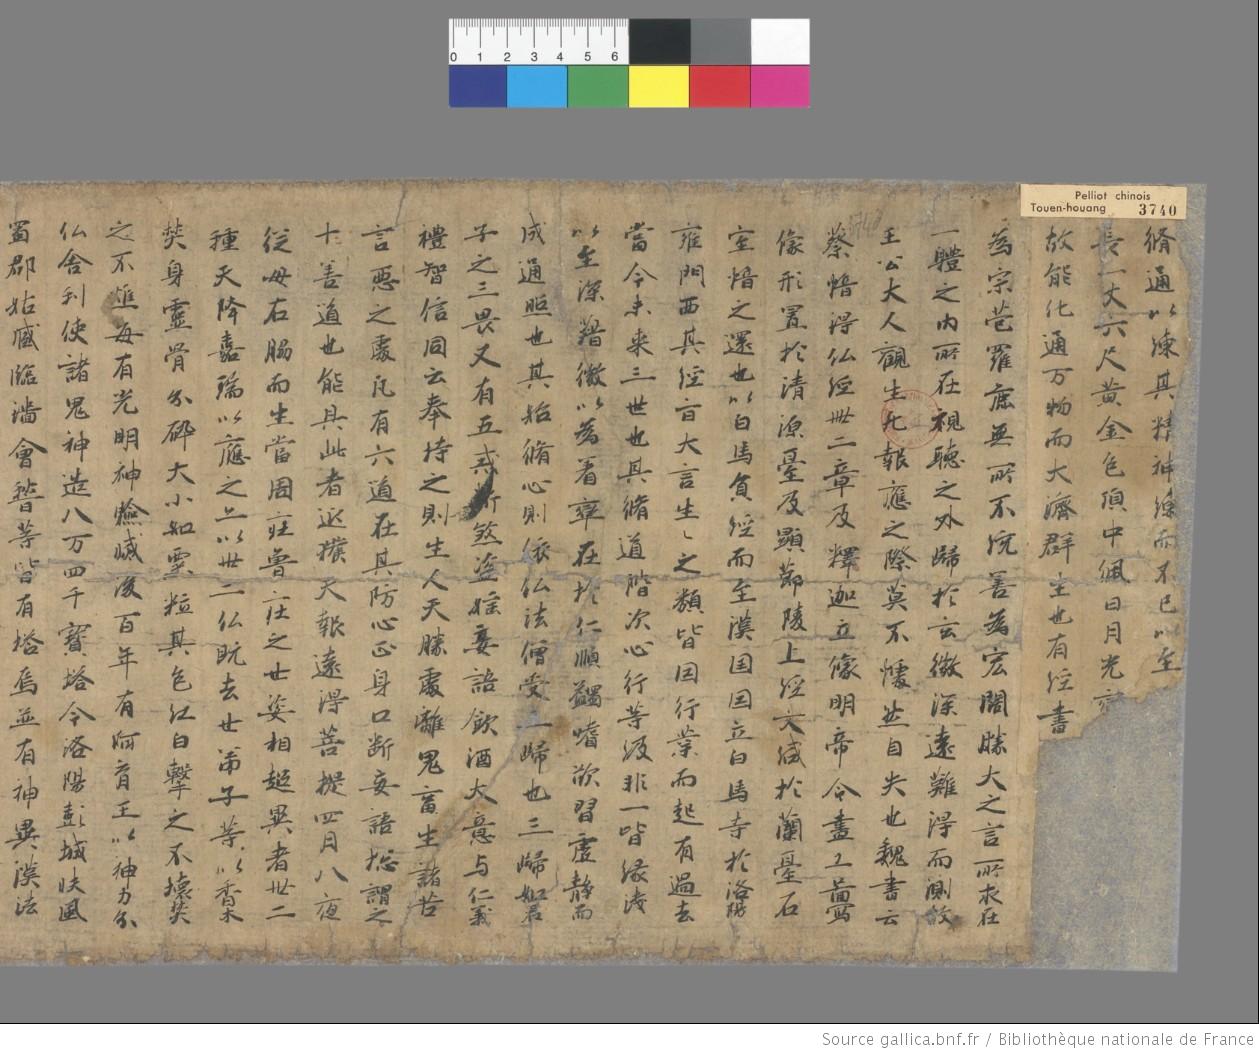 Pelliot chinois
Touen-houang 3740
0 1 2 3 4 5 6
脩通以練其精神練而不已以至
長一丈六尺黃金色頂中佩日月光
故能化通万物而大濟群生也有經書
為宗苞羅庶無所不統善為宏闊勝大之言所求在
一軆之内所在視聽之外歸於玄微深遠難得而測故
王公大人觀生死報應之際莫不懅然自失也魏書云
蔡愔得仏經卌二章及釋迦立像明帝令畫工圖寫
像形置於清源臺及顯節陵上經大咸於蘭臺石
室愔之還也以白馬負經而至漢因国立白馬寺於洛陽
雍門西其經旨大言生々之類皆因行業而起有過去
當今未来三世也其脩道階次心行等級非一皆緣淺
以至深藉微以為著率在於仁順蠲嗜欲習虛静而
成通照也其始脩心則依仏法僧受三歸也三歸如君
子之三畏又有五戒断煞盗婬妄語飲酒大意与仁義
禮智信同云奉持之則生人天勝處離鬼畜生諸苦
言惡之處凡有六道在其防心正身口断妄語惣謂之
十善道也能具此者近獲天報遠得菩提四月八夜
從母右脇而生當周莊魯庄之世姿相超異者卅二
種天降嘉瑞以應之亦以卅二仏既去世弟子等以香木
焚身靈骨分碎大小如粟粒其色紅白擊之不壞焚
之不燋每有光明神驗滅後百年有阿育王以神力分
仏舍利使諸鬼神造八万四千寳塔令洛陽彭城扶風
蜀郡姑臧臨淄會稽等皆有塔焉並有神異漢法
Source gallica.bnf.fr / Bibliothèque nationale de France